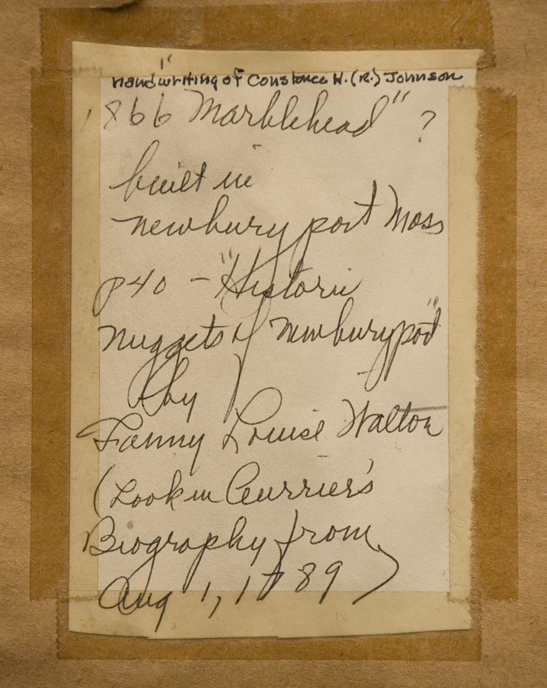 Handwriting of Constance W. (R.) Johnson
1866 "Marblehead" ?
built in
Newburyport Mass
p40 - "Historic
Nuggets of Newburyport"
by
Fanny Louise Walton
(Look in Currier's
Biography from
Aug 1, 1789)